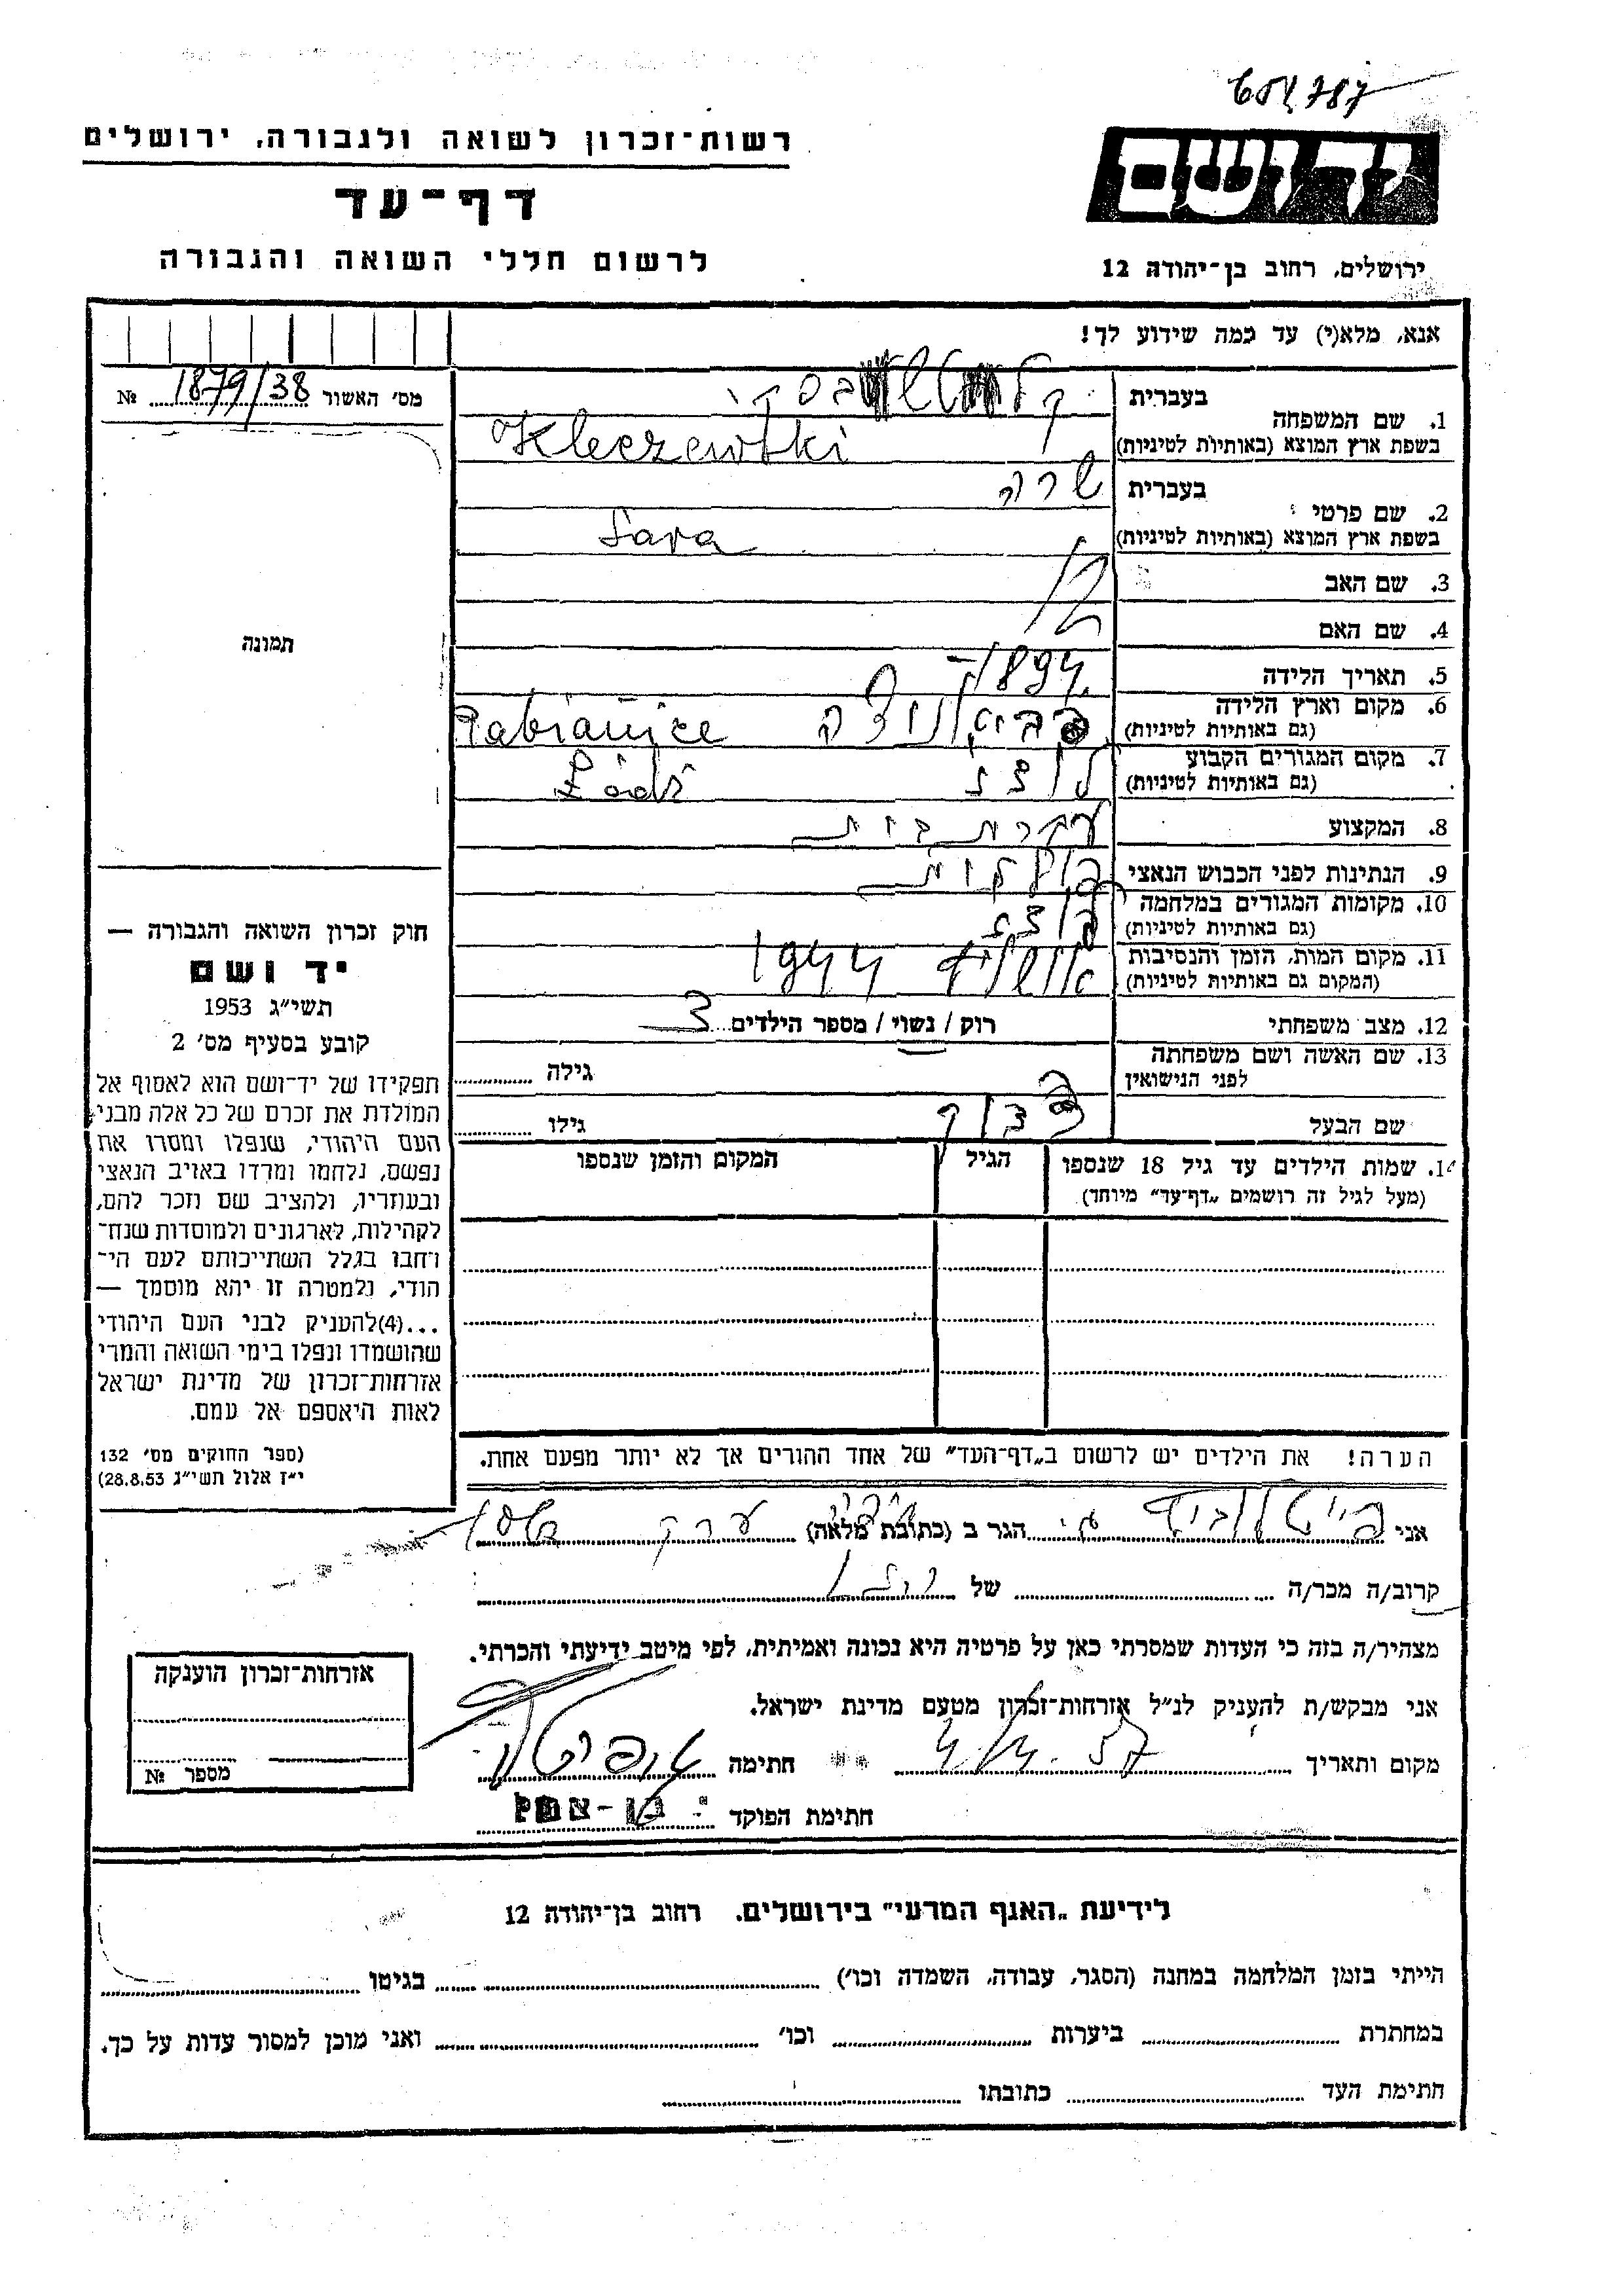 רשות־זכרון לשואה ולגבורה, ירושלים
דף־עד
לרשום חללי השואה והגבורה
ידושם
ירושלים, רחוב בן־יהודה 12
אנא, מלא(י) עד כמה שידוע לך!
מס׳ האשור 1879/38 №
תמונה
1. שם המשפחה
בעברית
בשפת ארץ המוצא (באותיות לטיניות) Kleczewski
2. שם פרטי :
בעברית שרה
בשפת ארץ המוצא (באותיות לטיניות) Sara
3. שם האב
4. שם האם
5. תאריך הלידה 1894
6. מקום וארץ הלידה
(גם באותיות לטיניות) Pabianice
7. מקום המגורים הקבוע
(גם באותיות לטיניות) לודז Łódź
8. המקצוע עקרת בית
9. הנתינות לפני הכבוש הנאצי פולנית
10. מקומות המגורים במלחמה
(גם באותיות לטיניות)
11. מקום המות, הזמן והנסיבות
(המקום גם באותיות לטיניות) 1944
12. מצב משפחתי רוק / נשוי / מספר הילדים 3
13. שם האשה ושם משפחתה
לפני הנישואין
גילה
שם הבעל
גילו
14. שמות הילדים עד גיל 18 שנספו
(מעל לגיל זה רושמים „דף־עד״ מיוחד)
הגיל
המקום והזמן שנספו
הערה! את הילדים יש לרשום ב„דף־העד״ של אחד ההורים אך לא יותר מפעם אחת.
חוק זכרון השואה והגבורה —
יד ושם
תשי״ג 1953
קובע בסעיף מס׳ 2
תפקידו של יד־ושם הוא לאסוף אל
המולדת את זכרם של כל אלה מבני
העם היהודי, שנפלו ומסרו את
נפשם, נלחמו ומרדו באויב הנאצי
ובעוזריו, ולהציב שם וזכר להם,
לקהילות, לארגונים ולמוסדות שנח־
רבו בגלל השתייכותם לעם הי־
הודי, ולמטרה זו יהא מוסמך —
...(4) להעניק לבני העם היהודי
שהושמדו ונפלו בימי השואה והמרי
אזרחות־זכרון של מדינת ישראל
לאות היאספם אל עמם.
(ספר החוקים מס׳ 132
י״ז אלול תשי״ג 28.8.53)
אני הגר ב (כתובת מלאה)
קרוב/ה מכר/ה של
מצהיר/ה בזה כי העדות שמסרתי כאן על פרטיה היא נכונה ואמיתית, לפי מיטב ידיעתי והכרתי.
אני מבקש/ת להעניק לנ״ל אזרחות־זכרון מטעם מדינת ישראל.
מקום ותאריך חתימה
חתימת הפוקד
אזרחות־זכרון הוענקה
מספר №
לידיעת „האגף המדעי״ בירושלים, רחוב בן־יהודה 12
הייתי בזמן המלחמה במחנה (הסגר, עבודה, השמדה וכו׳) בגיטו
במחתרת ביערות וכו׳ ואני מוכן למסור עדות על כך.
חתימת העד כתובתו